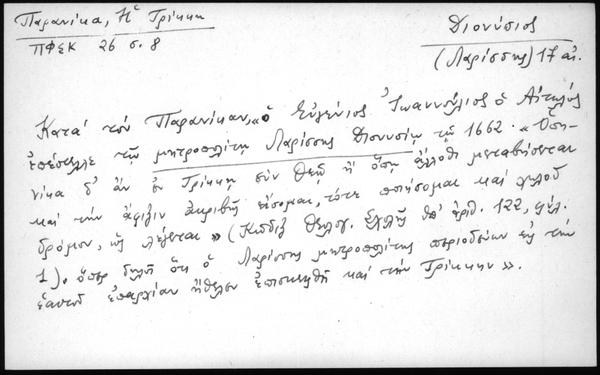 Παρανίκα, Ἡ Τρίκκη
ΠΦΣΚ 26 σ. 8
Διονύσιος
(Λαρίσσης) 17 αἰ.
Κατά τόν Παρανίκαν, «ὁ Εὐγένιος Ἰωαννούλιος ὁ Αἰτωλός
ἐπέστελλε τῷ μητροπολίτῃ Λαρίσσης Διονυσίῳ τῷ 1662 · «Ὁπη-
νίκα δ' ἄν ἐν Τρίκκῃ σύν Θεῷ ἤ ὅπῃ ἄλλοθι μεταβήσεται
καί τήν ἄφιξιν ἀκριβῆ εἴσομαι, τότε ποιήσομαι καί χωλοῦ
δρόμον, ὡς λέγεται» (Κῶδιξ Θεολογ. Σχολῆς ὑπ' ἀριθ. 122, φύλ.
1). ὅπερ δηλοῖ ὅτι ὁ Λαρίσσης μητροπολίτης περιοδεύων εἰς τήν
ἑαυτοῦ ἐπαρχίαν ἤθελεν ἐπισκεφθῆ καί τήν Τρίκκην».